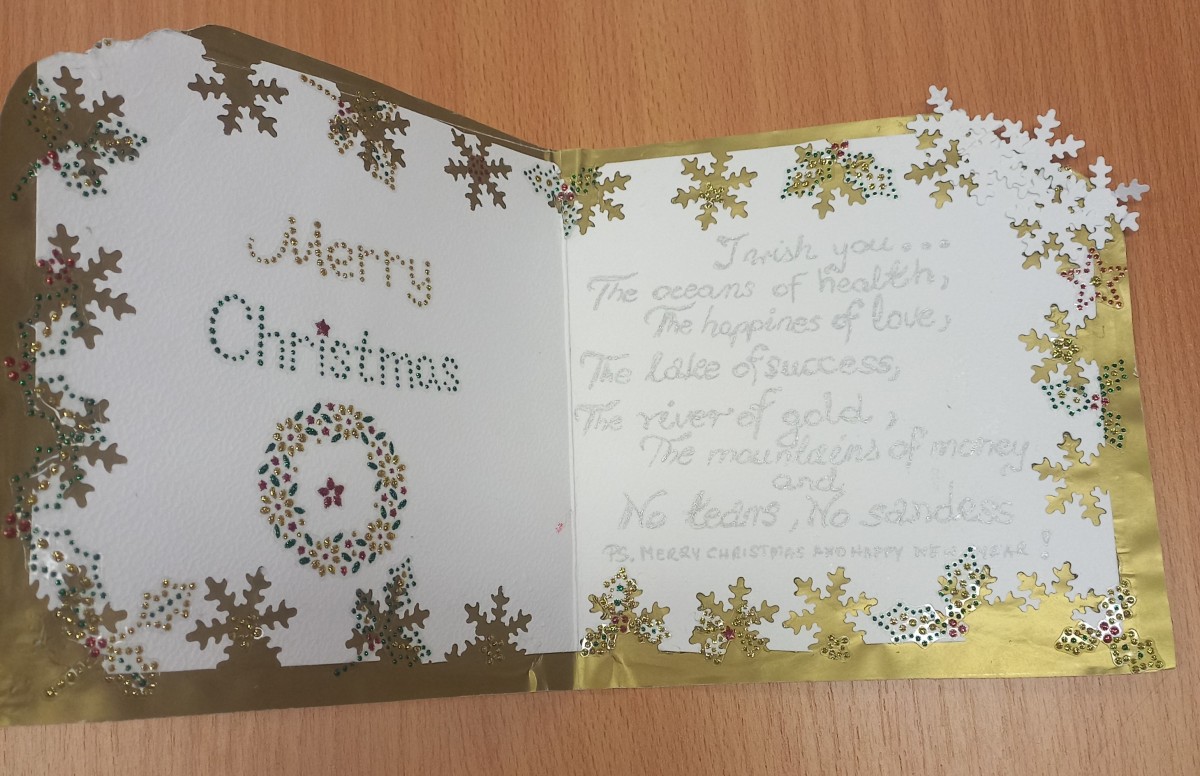 Merry
Christmas
I wish you...
The oceans of health,
The happines of love,
The lake of success,
The river of gold,
The mountains of money
and
No tears, No sandess
PS. MERRY CHRISTMAS AND HAPPY NEW YEAR!